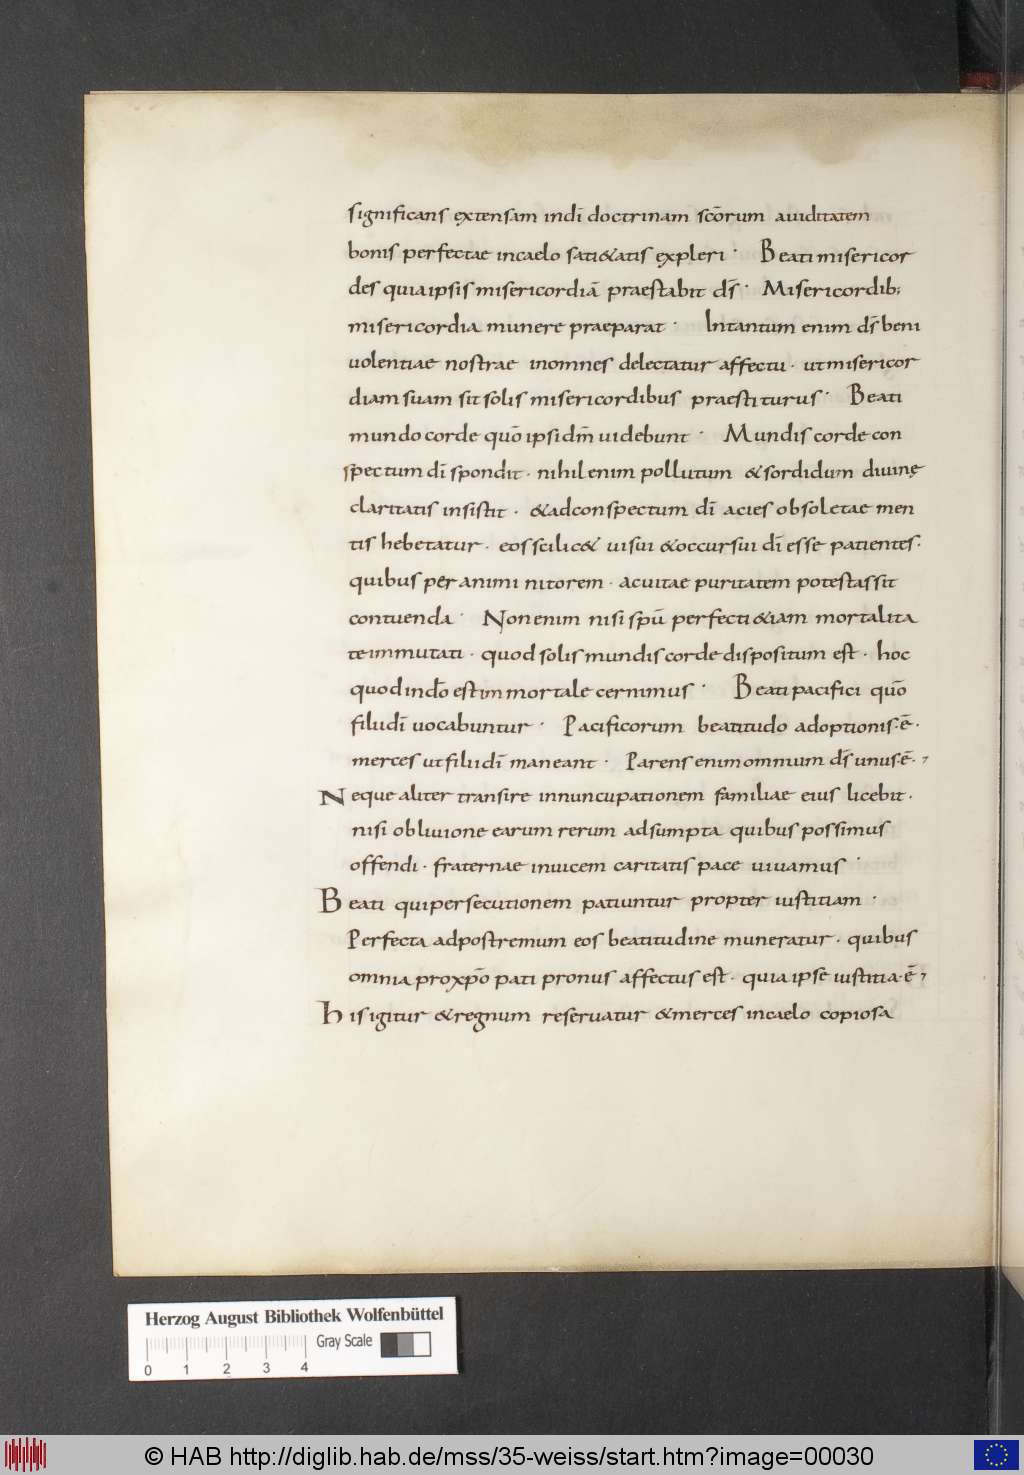 significans extensam indī doctrinam scōrum auiditatem
bonis perfectae incaelo sati&atis expleri · Beati misericor
des quia ipsis misericordiā praestabit ds̄ · Misericordib;
misericordia munere praeparat · Intantum enim ds̄ beni
uolentiae nostrae inomnes delectatur affectu · ut misericor
diam suam sit solis misericordibus praestiturus · Beati
mundo corde quō ipsi dm̄ uidebunt · Mundis corde con
spectum dī spondit · nihil enim pollutum & sordidum diuinę
claritatis insistit · & adconspectum dī acies obsoletae men
tis hebetatur · eos scilic& uisui & occursui dī esse patientes ·
quibus per animi nitorem · acuitae puritatem potestas sit
contuenda · Non enim nisi spū perfecti &iam mortalita
te immutati · quod solis mundis corde dispositum est · hoc
quod indō est inmortale cernimus · Beati pacifici quō
filii dī uocabuntur · Pacificorum beatitudo adoptionis · ē ·
merces ut filii dī maneant · Parens enim omnium ds̄ unus · ē ·,
Neque aliter transire innuncupationem familiae eius licebit ·
nisi obliuione earum rerum adsumpta quibus possimus
offendi · fraternae inuicem caritatis pace uiuamus ·
Beati qui persecutionem patiuntur propter iustitiam ·
Perfecta adpostremum eos beatitudine muneratur · quibus
omnia pro xpō pati pronus affectus est · quia ipse iustitia · ē,
His igitur & regnum reseruatur & merces incaelo copiosa
Herzog August Bibliothek Wolfenbüttel
Gray Scale
0 1 2 3 4
© HAB http://diglib.hab.de/mss/35-weiss/start.htm?image=00030